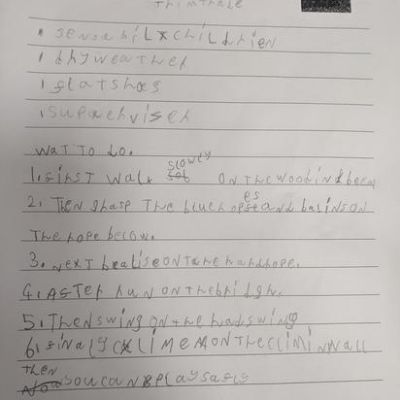 trimtrale
sensabilxchildrien
dhyweather
flatshos
supaehviser
wat to do.
1. first walk slowly on the woodin beem
2. Then gharp the blueh opes and balinson
The rope below.
3. next bealise on tahe hardrope.
4. aster run on the bridgh.
5. Then swing on the hadswing
6. finaly climem on the climinwall
then you can play safly